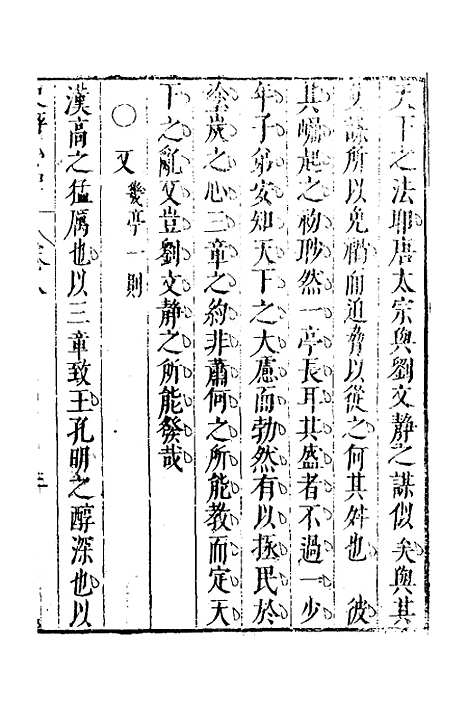 天下之法耶唐太宗與劉文靜之謀似矣與其
謀所以免禍而迫脅以從之何其舛也彼
其崛起之初眇然一亭長耳其盛者不過一少
年子弟安知天下之大慮而勃然有以拯民於
塗炭之心三章之約非蕭何之所能教而定天
下之亂又豈劉文靜之所能發哉
○又幾亭一則
漢高之猛厲也以三章致王孔明之醇深也以